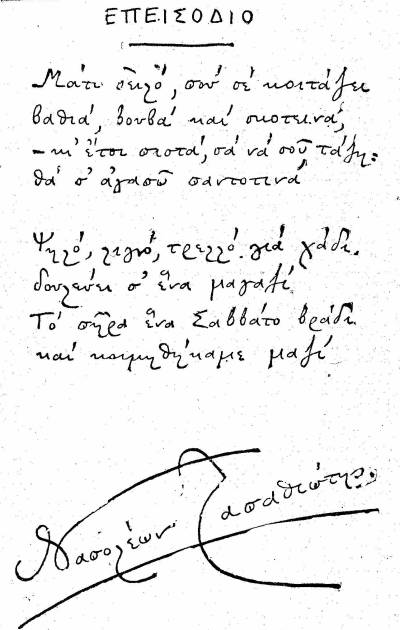 ΕΠΕΙΣΟΔΙΟ
Μάτι δειλό, πού σέ κοιτάζει
βαθιά, βουβά καί σκοτεινά,
– κι' ἔτσι πιστά, σά νά σοῦ τάζη:
θά σ' ἀγαπῶ παντοτινά
Ψηλό, λιγνό, τρελλό γιά χάδι,
δουλεύει σ' ἕνα μαγαζί
Τό πῆρα ἕνα Σαββάτο βράδι
καί κοιμηθήκαμε μαζί
Ναπολέων Λαπαθιώτης